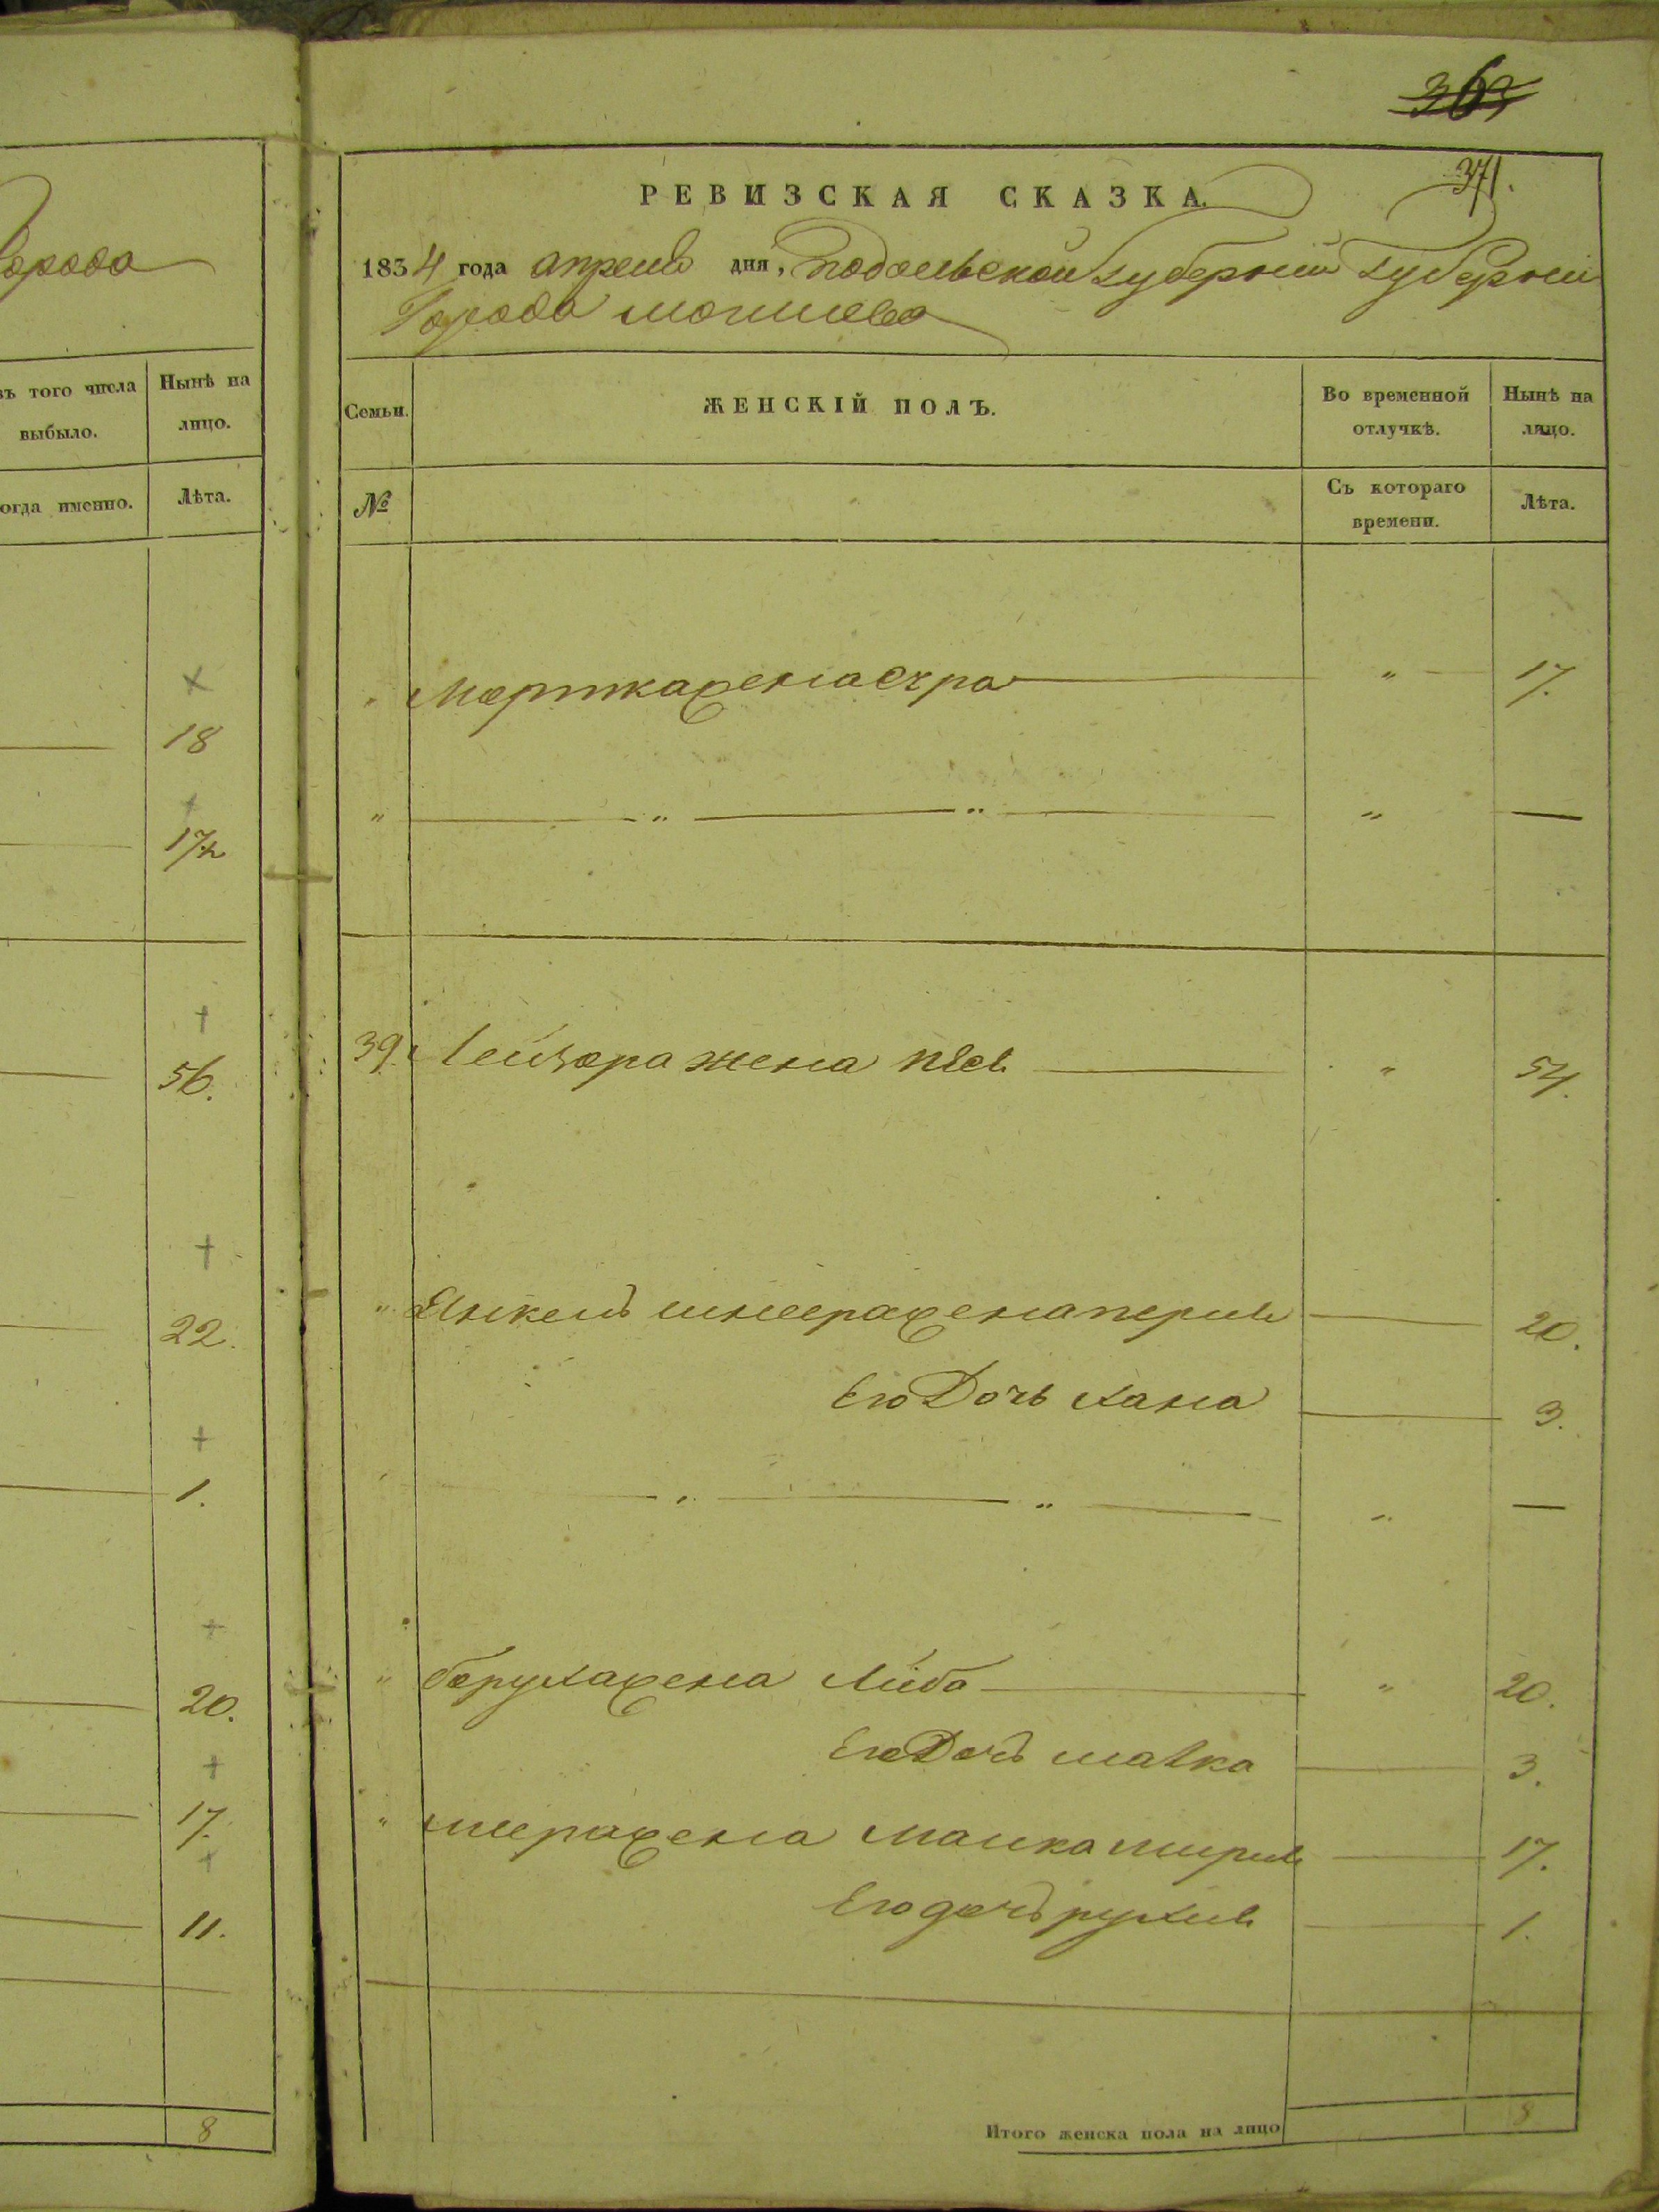 363
371.
РЕВИЗСКАЯ СКАЗКА.
1834 года апреля дня, Подольской губернии губернии
Города Могилева
Города
въ того числа выбыло. Нынѣ на лицо.
огда именно. Лѣта.
18
17½
56.
22.
1.
20.
17.
11.
8
Семьи. ЖЕНСКІЙ ПОЛЪ. Во временной отлучкѣ. Нынѣ на лицо.
№ Съ котораго времени. Лѣта.
" Мортка жена Сура " 17.
" " " " —
39. Лейзора жена " 54.
" Янкель шмера жена перля 20.
Его Дочь хана 3.
" " " " —
" Боруха жена Либа " 20.
Его Дочь малка 3.
" жена малка 17.
Его дочь рухля 1.
Итого женска пола на лицо 8